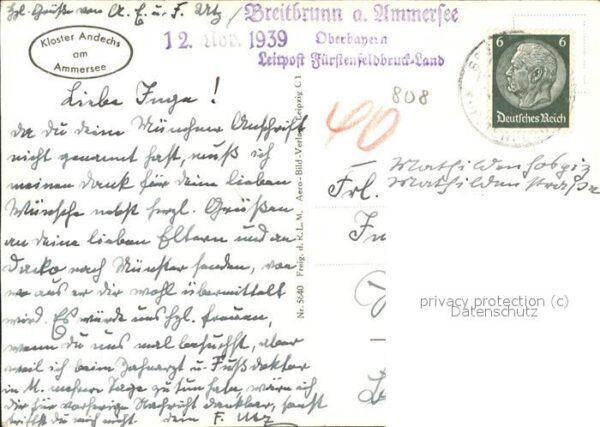 hzl. Grüße von A. E. u. F. Utz
Breitbrunn a. Ammersee
12. Nov. 1939 Oberbayern
Leitpost Fürstenfeldbruck-Land
Kloster Andechs
am
Ammersee
6 6
Deutsches Reich
808
40
Liebe Inge!
da du deine Münchner Anschrift
nicht genannt hast, muß ich
meinen Dank für deine lieben
Wünsche nebst herzl. Grüßen
an deine lieben Eltern und an
nach Münster senden, von
wo aus er dir wohl übermittelt
wird. Es würde uns hzl. freuen,
wenn du uns mal besuchst, aber
weil ich beim Zahnarzt u. Fußdoktor
in M. mehrere Tage zu tun habe, wäre ich
dir für vorherige Nachricht dankbar, sonst
triffst du mich nicht. dein F. Utz
Nr. 5640 Freig. d. R.L.M. Aero-Bild-Verlag Leipzig C1
Mathildenhospiz
Mathildenstraße
Frl.
privacy protection (c)
Datenschutz